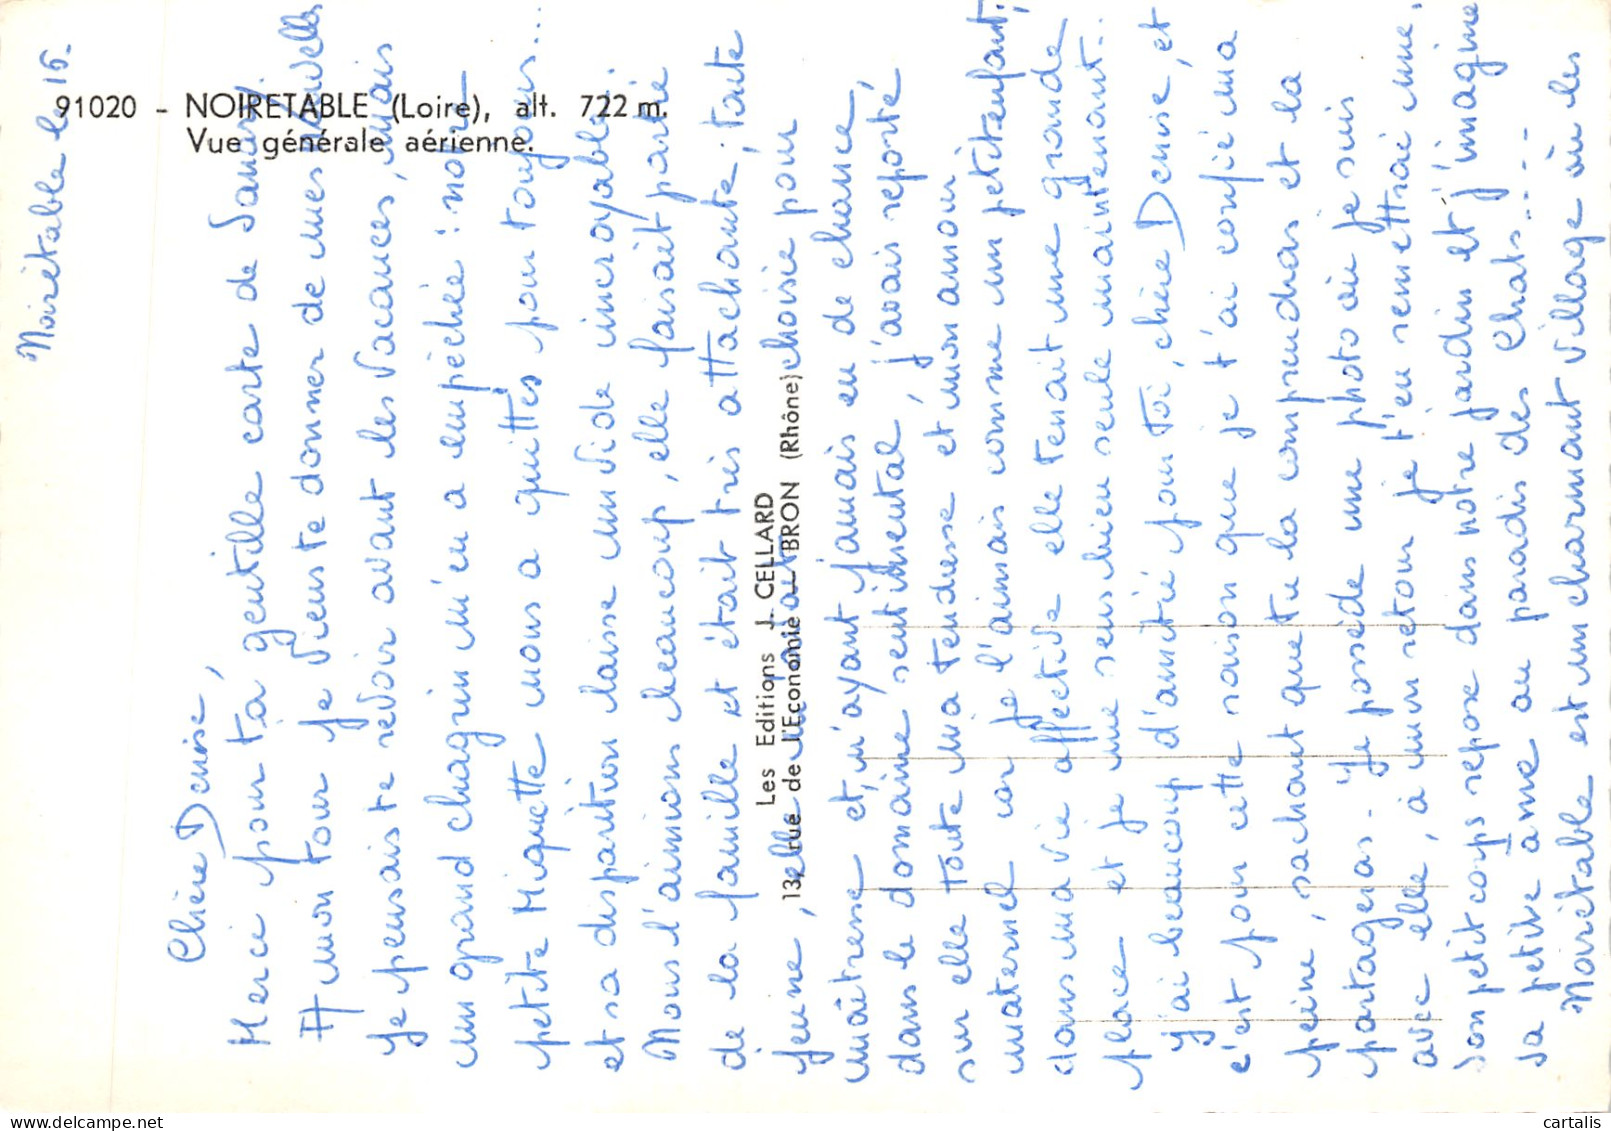 91020 - NOIRETABLE (Loire), alt. 722 m.
Vue générale aérienne.
Les Editions J. CELLARD
13, rue de l'Economie - BRON (Rhône)
Noirétable le 15.
Chère Denise,
Merci pour ta gentille carte de Sanary.
A mon tour je viens te donner de mes nouvelles
Je pensais te revoir avant les vacances, mais
un grand chagrin m'en a empêchée : notre
petite Miquette nous a quittés pour toujours...
et sa disparition laisse un vide incroyable.
Nous l'aimions beaucoup, elle faisait partie
de la famille et était très attachante ; toute
jeune, elle m'avait choisie pour
maîtresse et, n'ayant jamais eu de chance,
dans le domaine sentimental, j'avais reporté
sur elle toute ma tendresse et mon amour
maternel car je l'aimais comme un petit enfant ;
dans ma vie affective elle tenait une grande
place et je me sens bien seule maintenant..
j'ai beaucoup d'amitié pour toi, chère Denise, et
c'est pour cette raison que je t'ai confié ma
peine, sachant que tu la comprendras et la
partageras. Je possède une photo où je suis
avec elle, à mon retour je t'en remettrai une.
Son petit corps repose dans notre jardin et j'imagine
sa petite âme au paradis des Chats....
Noirétable est un charmant village où les
cartalis